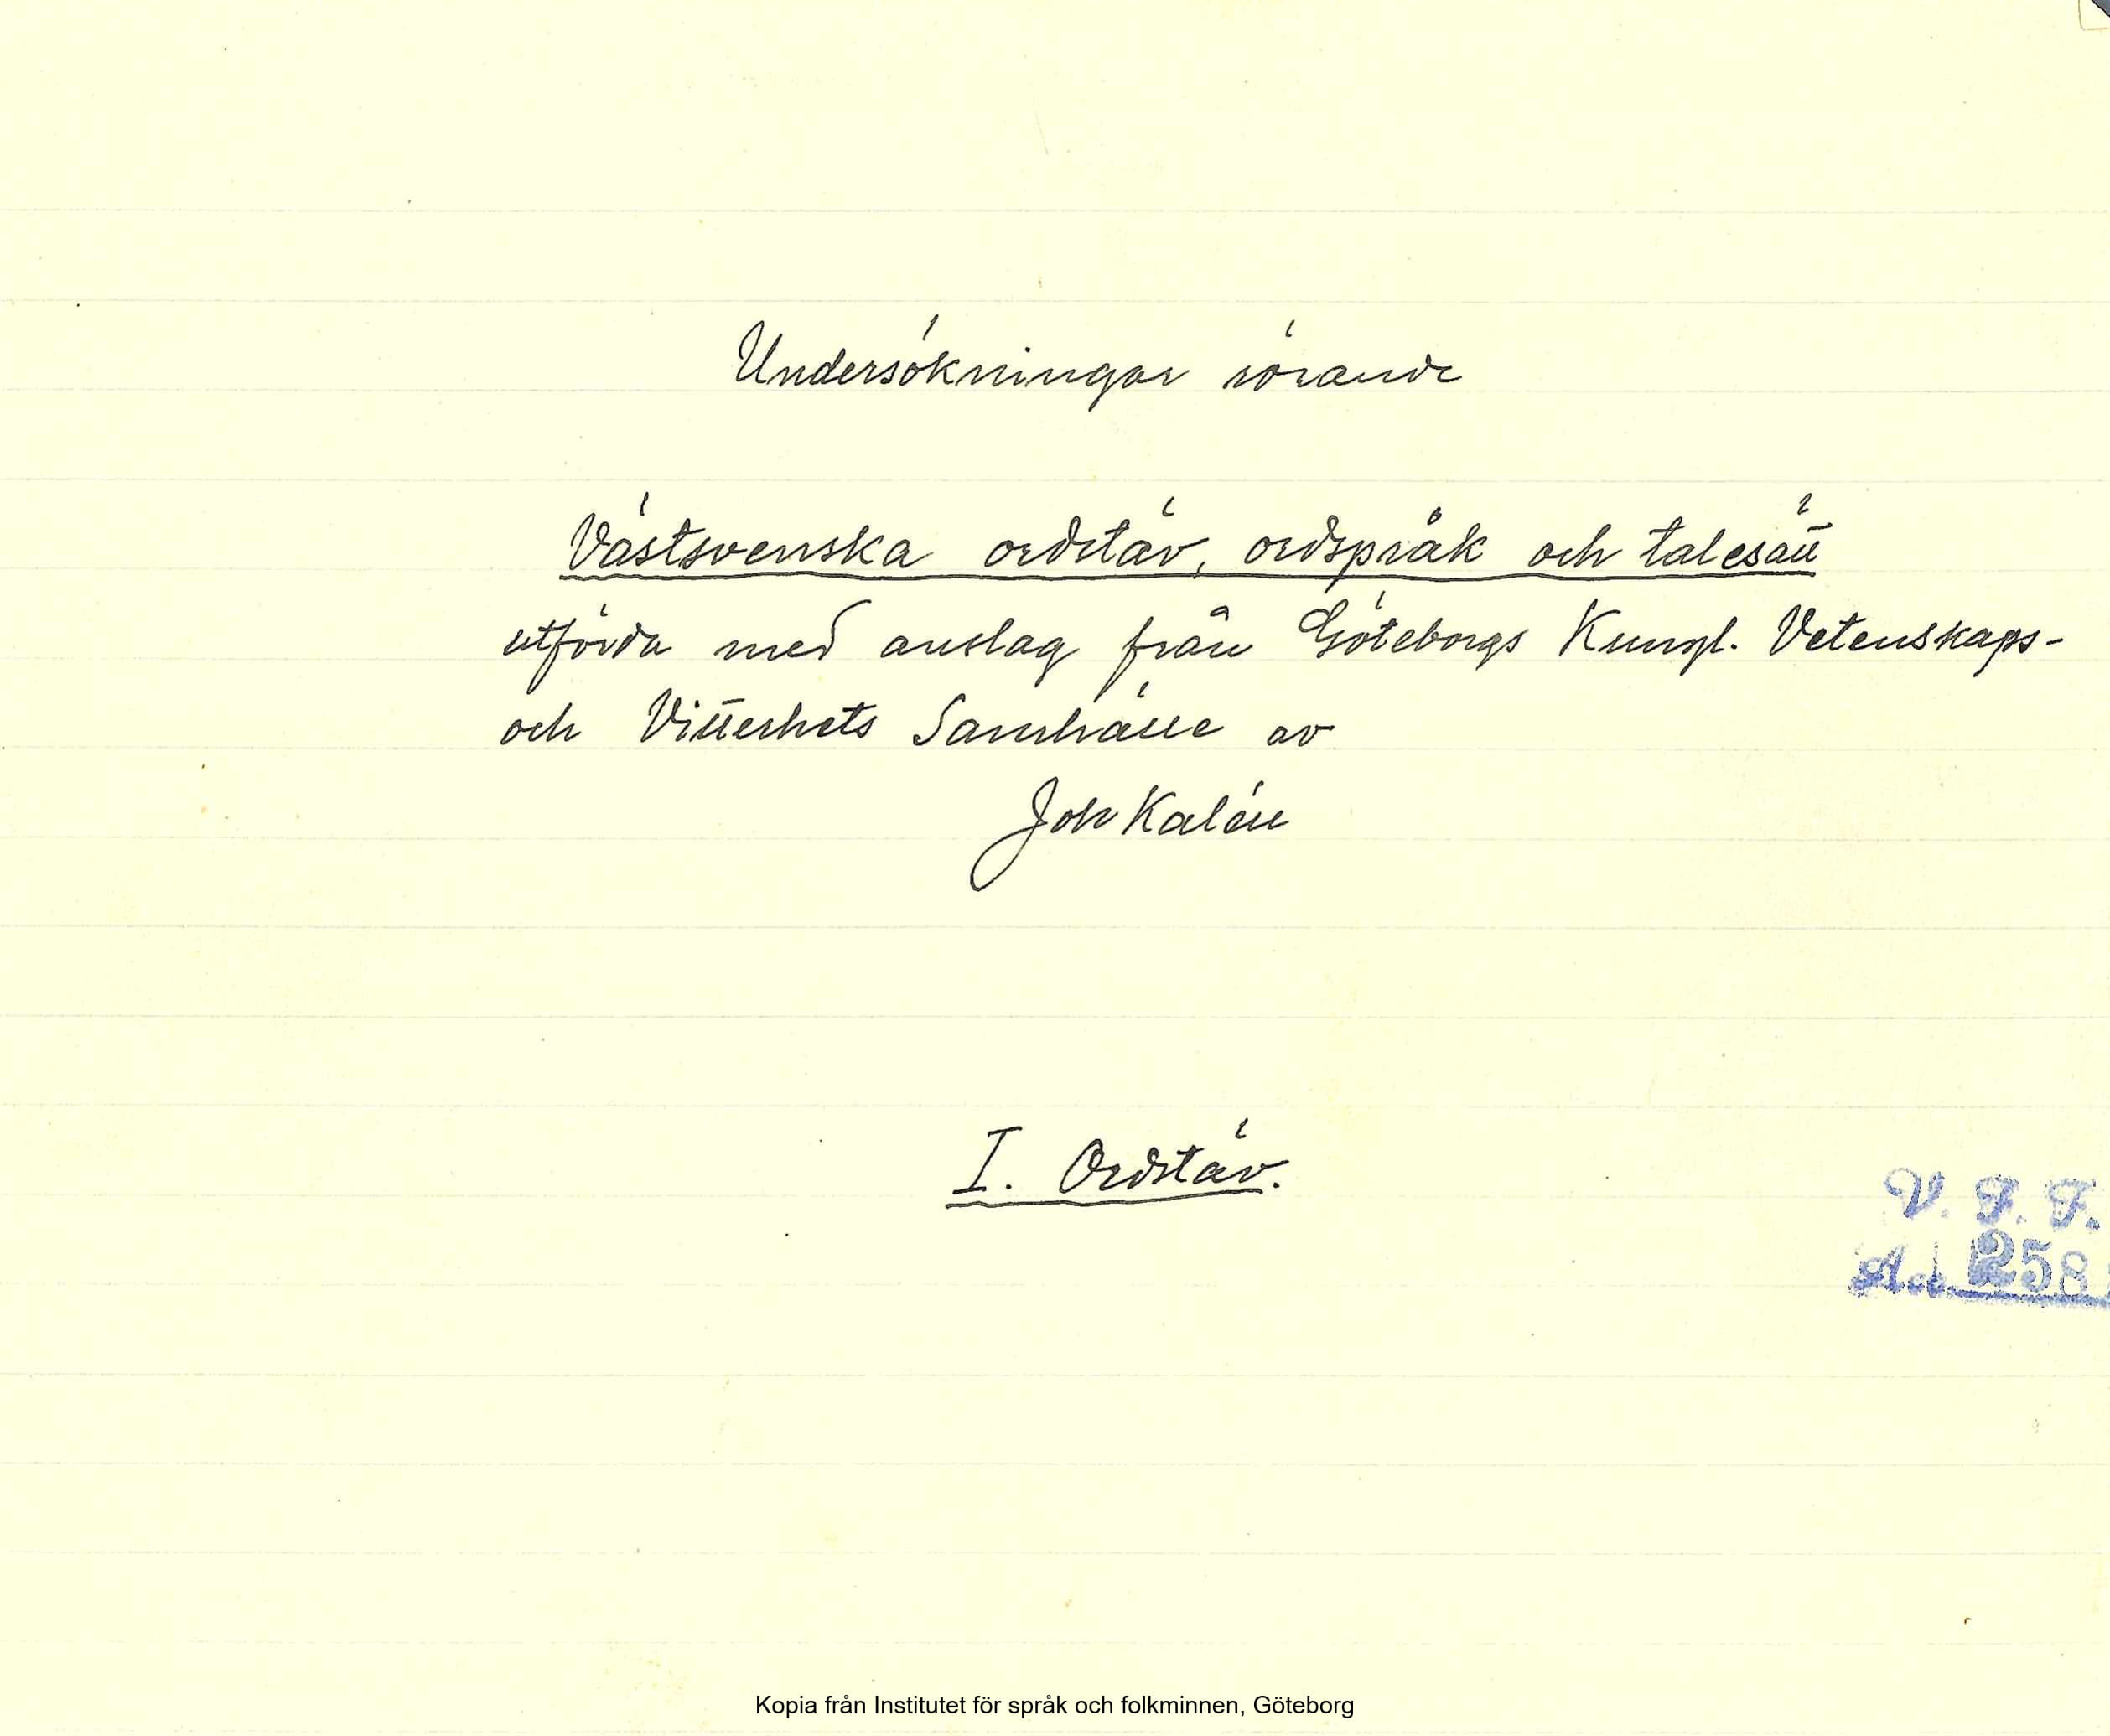 Undersökningar rörande
Västsvenska ordstäv, ordspråk och talesätt
utförda med anslag från Göteborgs Kungl. Vetenskaps-
och Vitterhets Samhälle av
Joh Kalén
I. Ordstäv.
V. F. F.
Acc. 1258
Kopia från Institutet för språk och folkminnen, Göteborg